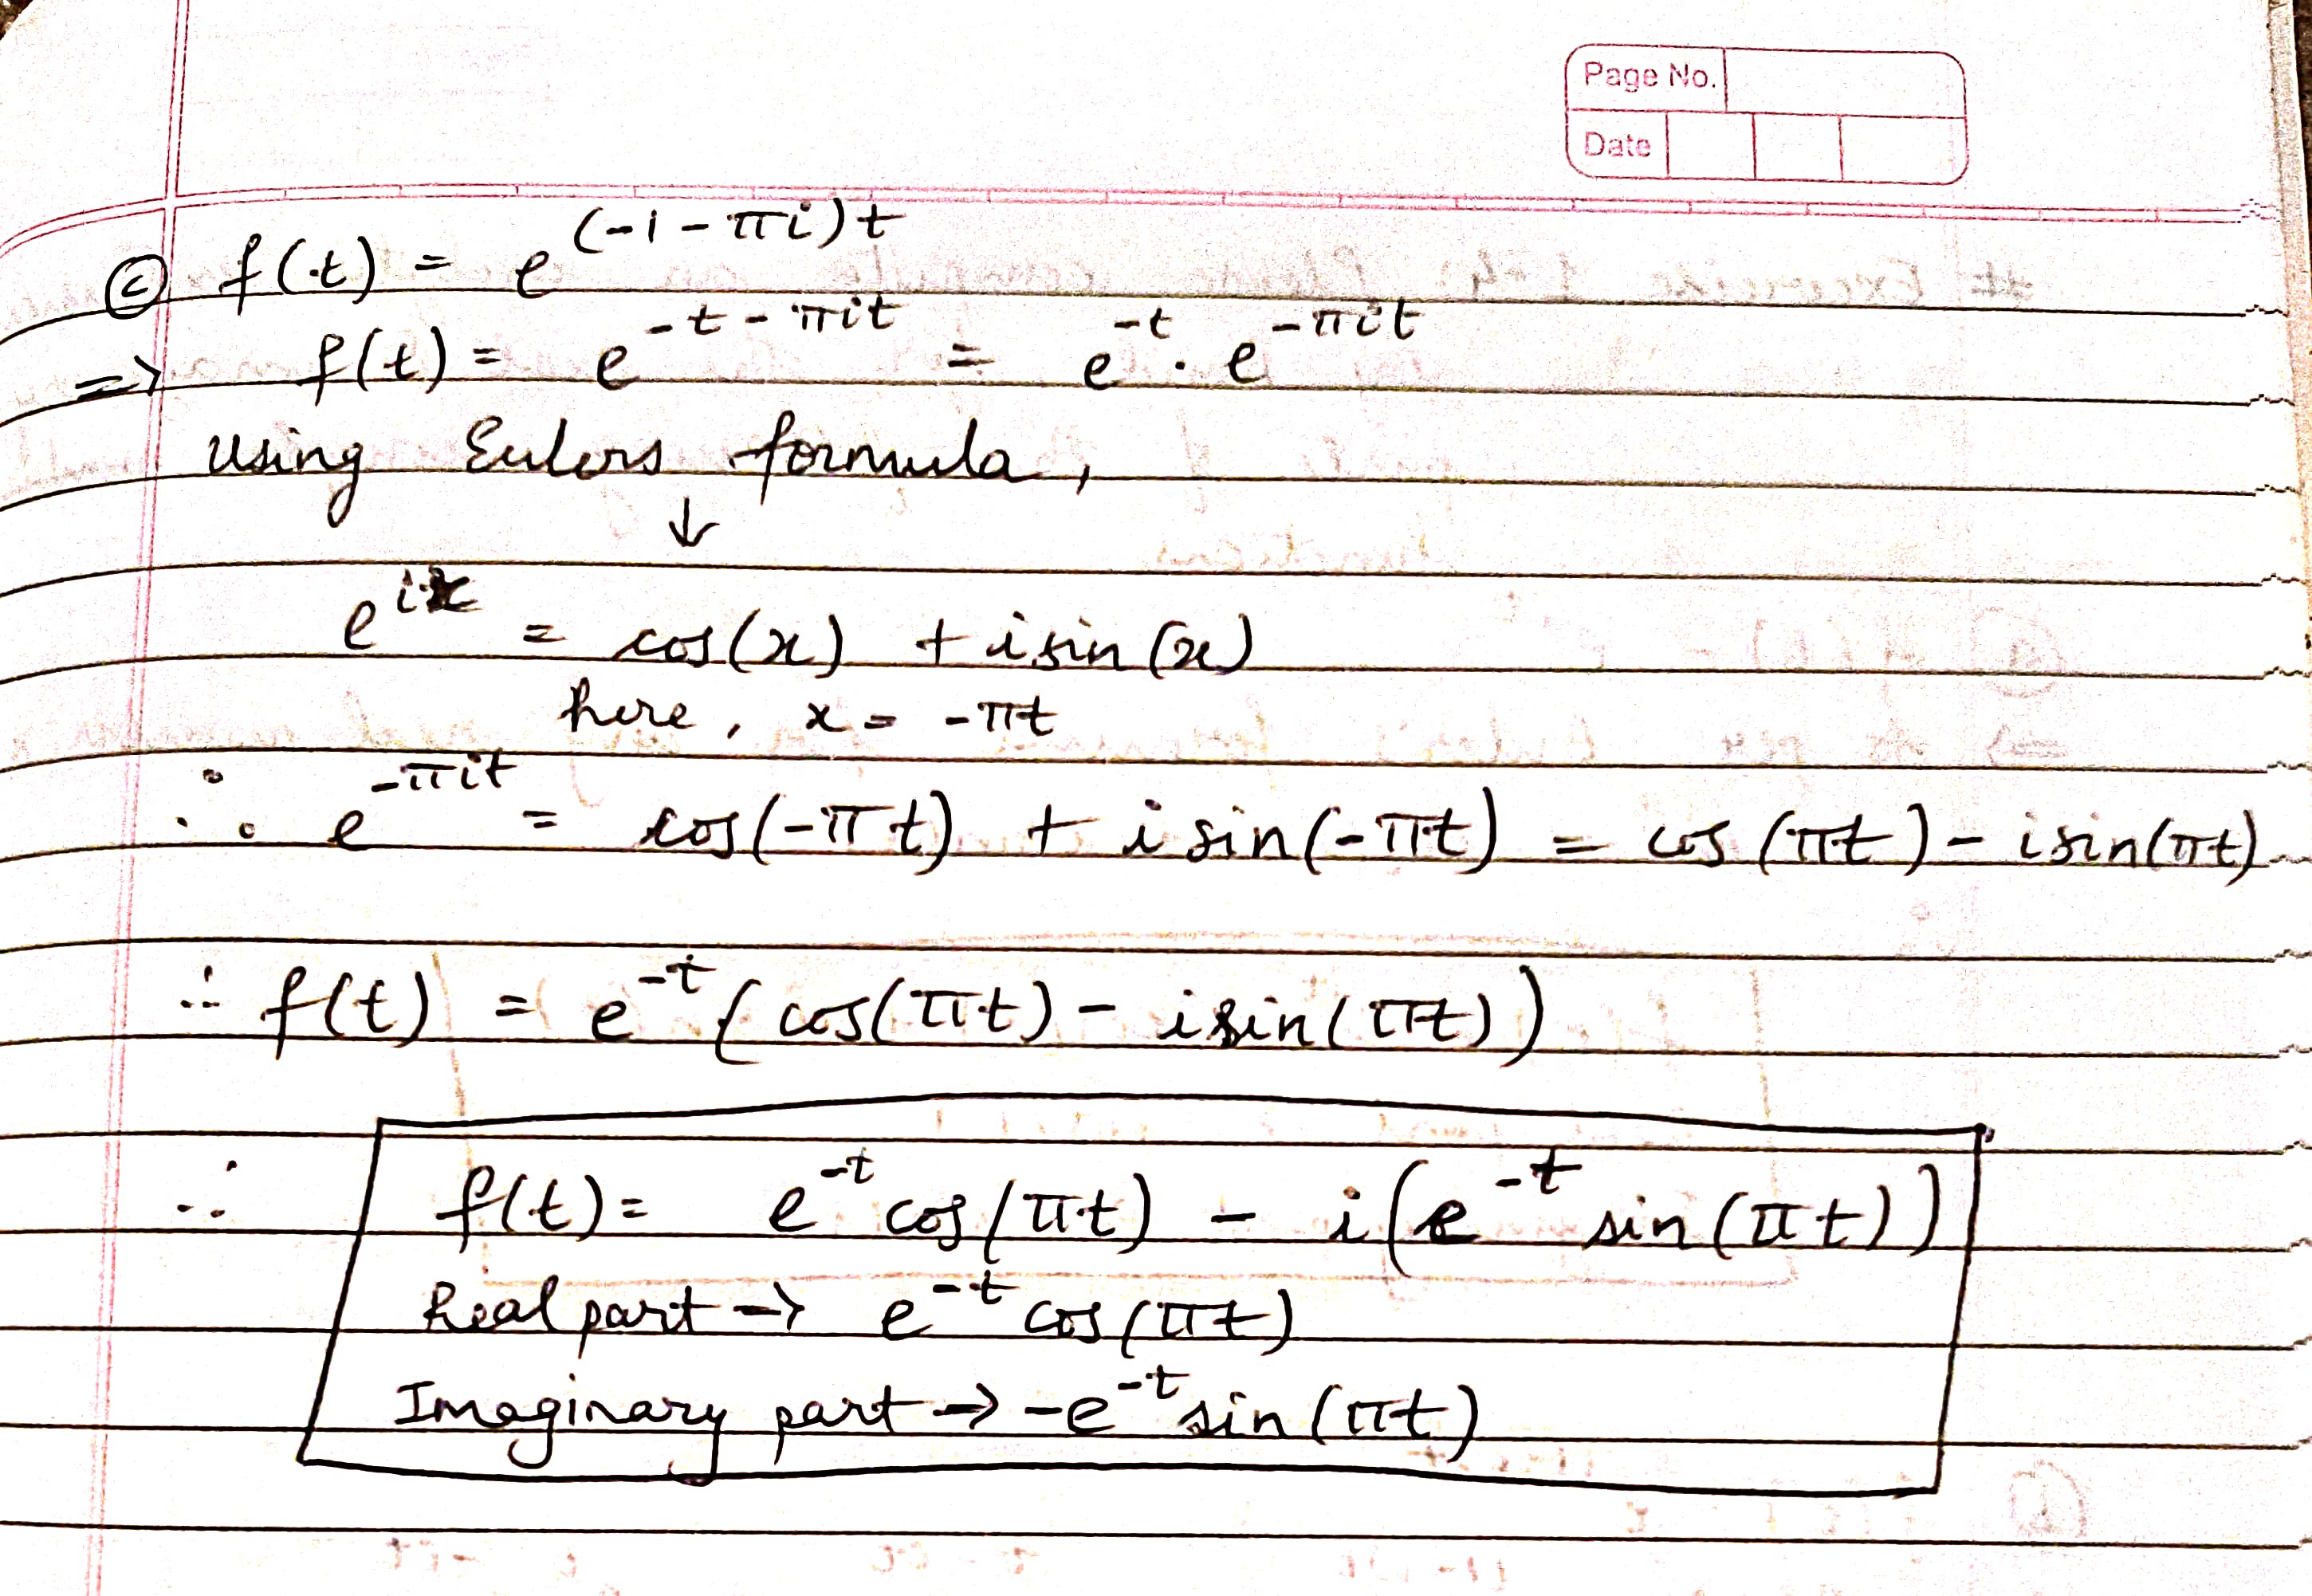 Page No.
Date
ⓒ f(t) = e^(-1-πi)t
=> f(t) = e^-t-πit = e^-t . e^-πit
using Eulers formula,
↓
e^ix = cos(x) + i sin(x)
here, x = -πt
∴ e^-πit = cos(-πt) + i sin(-πt) = cos(πt) - i sin(πt)
∴ f(t) = e^-t (cos(πt) - i sin(πt))
∴ f(t) = e^-t cos(πt) - i(e^-t sin(πt))
Real part -> e^-t cos(πt)
Imaginary part -> -e^-t sin(πt)